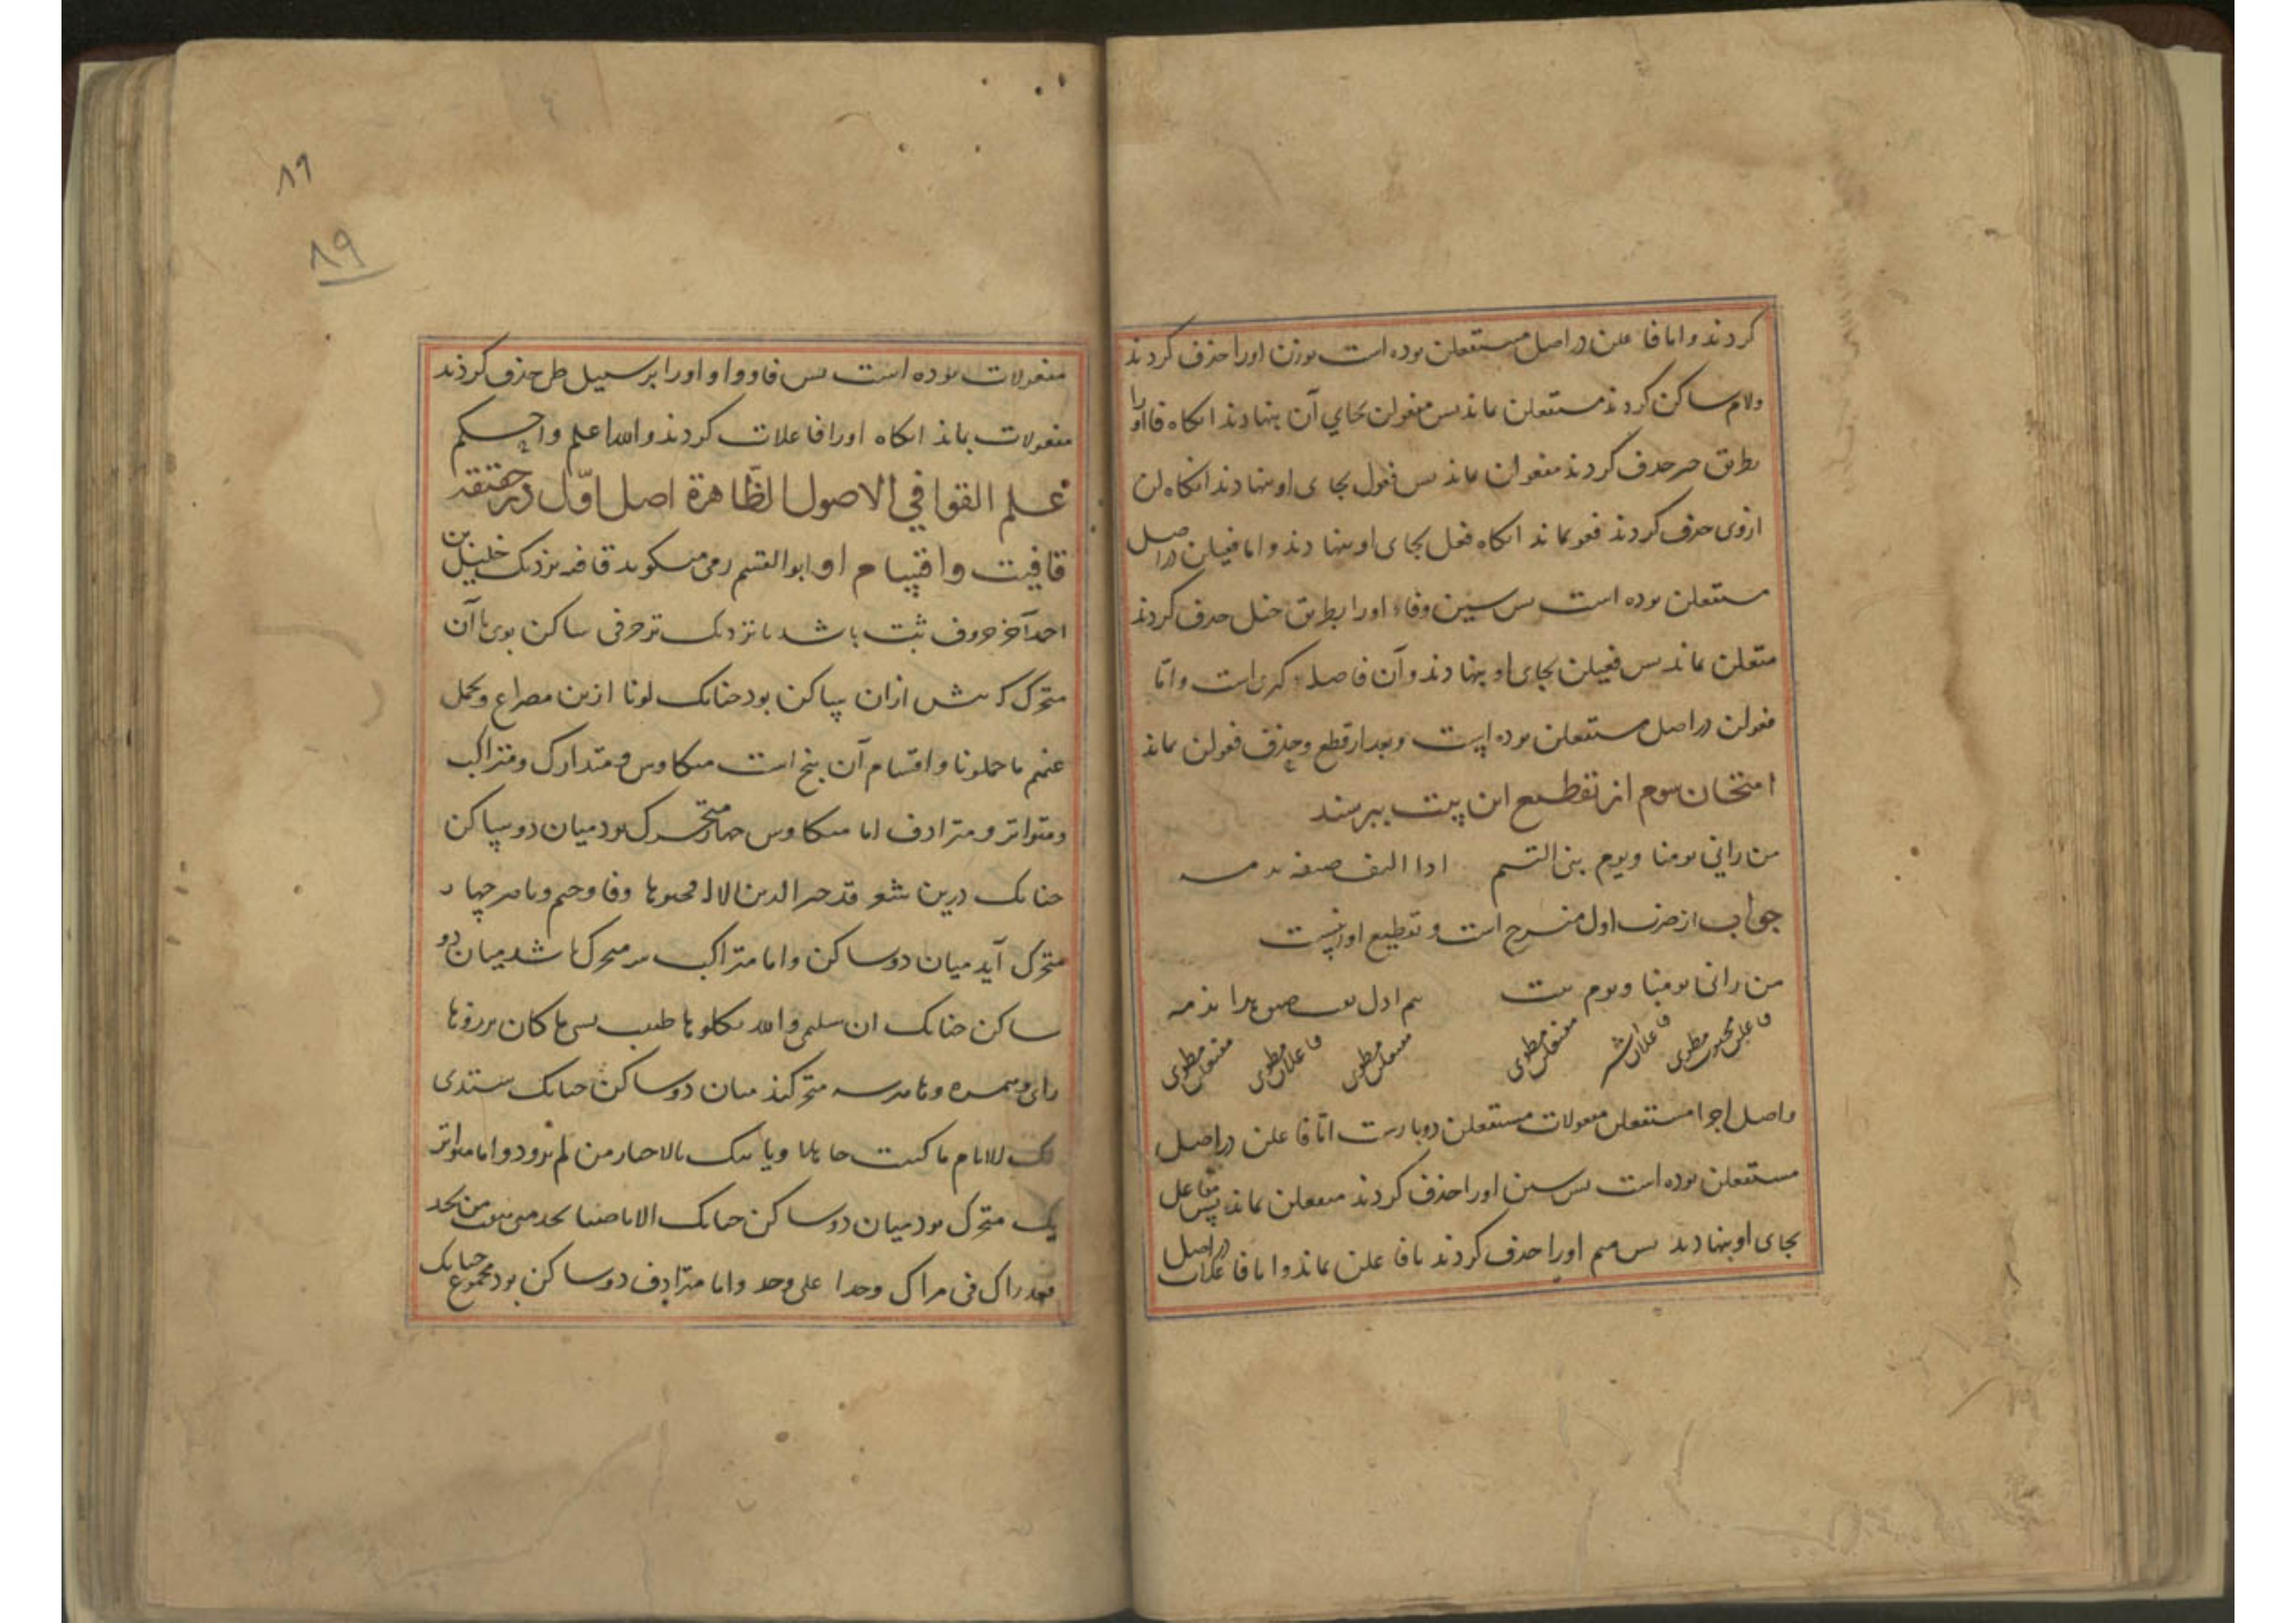 کردند و اما فاعلن در اصل مستفعلن بوده است بوزن اورا حذف کردند
ولام ساکن کردند مستفعلن ماند پس مفعولن بجای آن بنهادند انکاه فا اورا
بطریق حذف کردند معولن ماند پس فعول بجای او بنهادند انکاه لن
ازوی حذف کردند فعو بماند انکاه فعل بجای او بنهادند و اما فعیلن در اصل
مستفعلن بوده است پس سین وفاء اورا بطریق خبل حذف کردند
متعلن بماند پس فعیلن بجای او بنهادند و آن فاصله کبری است و اما
فعولن در اصل مستفعلن بوده است و بعد از قطع و حذف فعولن بماند
امتحان سوم از تقطیع این بیت ببرسند
من رانی یومنا ویوم بنی التیم اذا التف صیقه بدمه
جواب از ضرب اول منسرح است و تقطیع او اینست
من رانی یومنا ویوم بنت
فاعلن مخبون مطوی فاعلات مفتعلن مطوی مفتعلن مطوی فاعلات مطوی مفتعلن مطوی
واصل اجزا مستفعلن مفعولات مستفعلن دوبارست اما فاعلن در اصل
مستفعلن بوده است پس سین اورا حذف کردند متفعلن بماند پس مفاعل
بجای او بنهادند پس میم اورا حذف کردند تا فاعلن بماند و اما فاعلات در اصل
۸۹
۸۹
مفعولات بوده است پس فا و واو اورا بر سبیل طی حذف کردند
مفعولات بماند انکاه اورا فاعلات کردند والله اعلم واحکم
علم القوافی الاصول الظاهرة اصل اول در حقیقة
قافیت واقسام او ابو القسم رمی میکوید قافیه نزدیک خلیل بن
احمد آخر حروف بیت باشد تا نزدیک تر حرفی ساکن بوی با آن
متحرک که پیش ازان ساکن بود چنانک لونا ازین مصراع وتحمل
عنهم ما حملونا واقسام آن پنج است متکاوس ومتدارک ومتراکب
ومتواتر ومترادف اما متکاوس چهار متحرک بود میان دو ساکن
چنانک درین شعر قد جبر الدین الاله فجبرها وفا وجیم وبا ور چهار
متحرک آید میان دو ساکن واما متراکب سه متحرک باشد میان دو
ساکن چنانک ان سلیمی والله یکلوها ضنت بشی ما کان یرزوها
رای وهمزه وها هرسه متحرکند میان دو ساکن چنانک ستبدی
لک الایام ما کنت جاهلا ویاتیک بالاخبار من لم تزود واما متواتر
یک متحرک بود میان دو ساکن چنانک الا یا صبا نجد متی هجت من نجد
فقد زادنی مسراک وجدا علی وجد واما مترادف دو ساکن بود مجموع چنانک